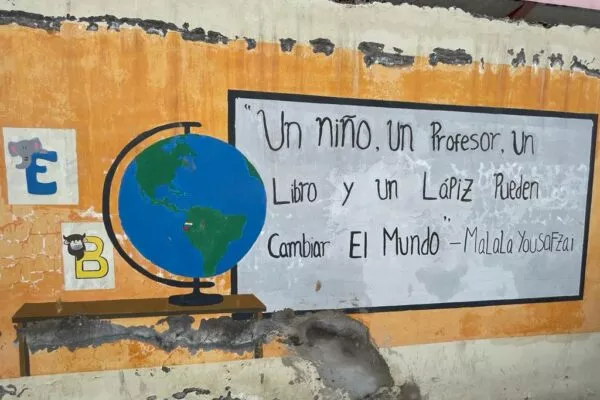 E
B
"Un niño, un Profesor, un
Libro y un Lápiz Pueden
Cambiar El Mundo" - Malala Yousafzai